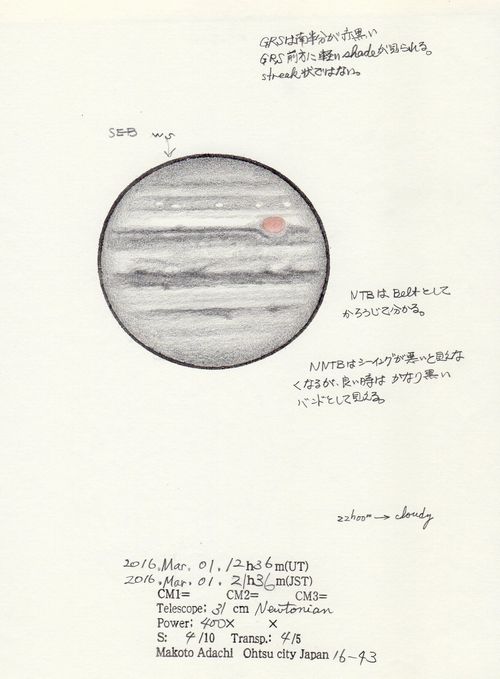 GRSは南半分が赤黒い
GRS前方に軽いshadeが見られる。
streak状ではない。
SEB WS
NTBはBeltとして
かろうじて分かる。
NNTBはシーイングが悪いと見えな
くなるが、良い時はかなり黒い
バンドとして見える。
22h00m → cloudy
2016.Mar. 01. 12h36m(UT)
2016.Mar. 01. 21h36m(JST)
CM1= CM2= CM3=
Telescope: 31 cm Newtonian
Power: 400× ×
S: 4/10 Transp.: 4/5
Makoto Adachi Ohtsu city Japan 16-43